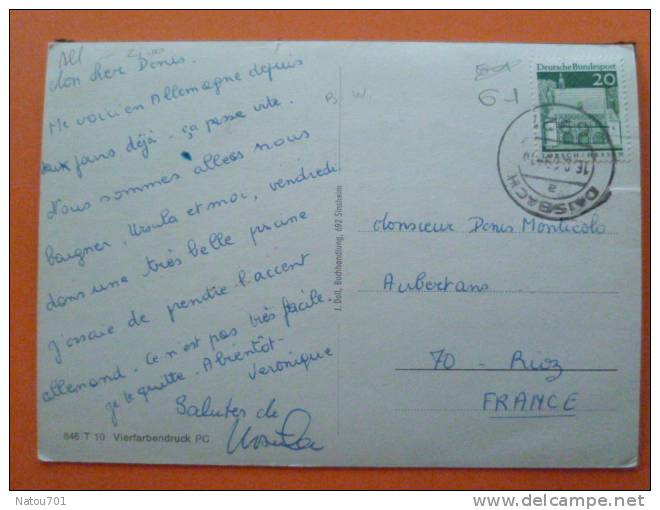 All
Mon cher Denis.
Me voici en Allemagne depuis
deux jours déjà - ça passe vite.
Nous sommes allées nous
baigner, Ursula et moi, vendredi
dans une très belle piscine
J'essaie de prendre l'accent
allemand. Ce n'est pas très facile.
je te quitte. A bientôt -
Veronique
Salutes de
Ursula
846 T 10 Vierfarbendruck PC
B. W.
J. Doll, Buchhandlung, 692 Sinsheim
6-1
Deutsche Bundespost
20
DAISBACH
a
Monsieur Denis Monticolo
Aubertans
70 - Rioz
FRANCE
Natou701
delcampe.net